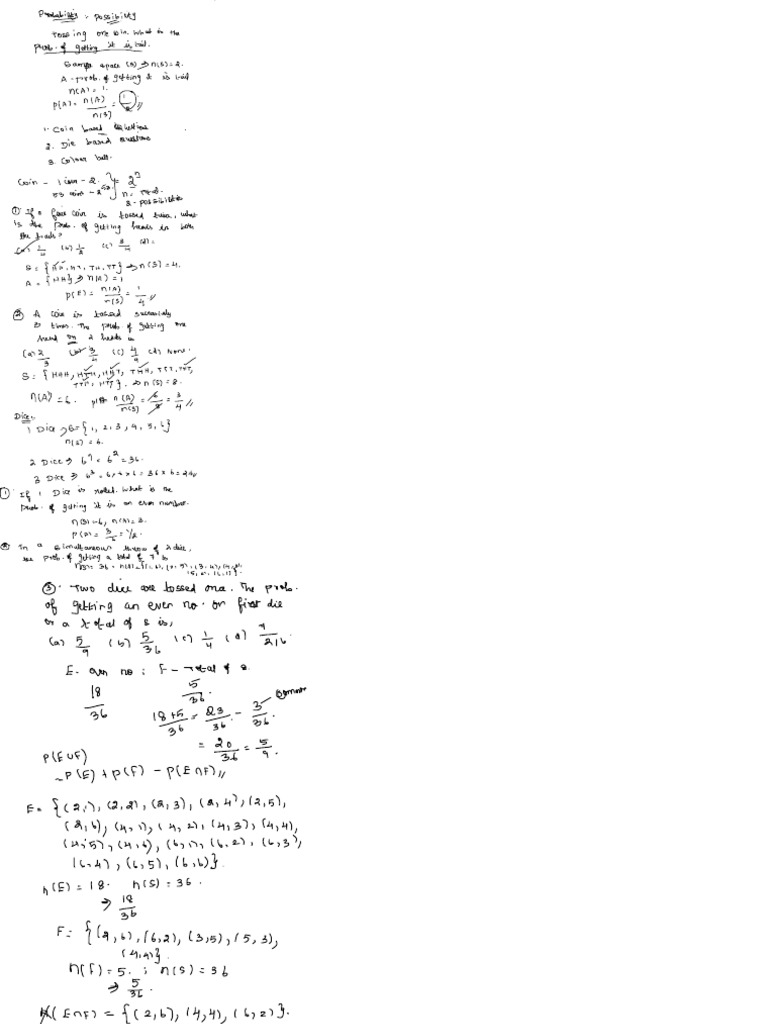 Probability : Possibility
Tossing one coin. What is the
prob. of getting it is tail.
Sample space (S) ⇒ n(S) = 2.
A - prob. of getting it is tail
n(A) = 1.
P(A) = n(A)/n(S) = 1/2 //
1. Coin based questions
2. Die based questions
3. Colour ball.
Coin - 1 coin - 2. } = 2^n
① If a fair coin is tossed twice, what
is the prob. of getting heads in both
the trials?
(a) 1/4 (b) 1/2 (c) 3/4 (d) -
S = {HH, HT, TH, TT} ⇒ n(S) = 4.
A = {HH} ⇒ n(A) = 1
P(E) = n(A)/n(S) = 1/4 //
② A coin is tossed successively
3 times. The prob. of getting one
head or 2 heads is
(a) 2/3 (b) 3/4 (c) 4/9 (d) None.
n(A) = 6. n(A)/n(S) = 6/8 = 3/4 //
Dice:
1 Dice ⇒ S = {1, 2, 3, 4, 5, 6}
n(S) = 6.
2 Dice ⇒ 6^n = 6^2 = 36.
① If 1 Dice is rolled. What is the
prob. of getting it is an even number.
n(S) = 6, n(A) = 3.
P(A) = 3/6 = 1/2.
② In a simultaneous throw of 2 dice,
the prob. of getting a total of 7 is
③. Two dice are tossed once. The prob.
of getting an even no. on first die
or a total of 8 is,
(a) 5/9 (b) 5/36 (c) 1/4 (d)
E - even no ; F - total of 8
18/36 5/36.
18+5/36 = 23/36 - 3/36. common
= 20/36 = 5/9.
P(E∪F)
~ P(E) + P(F) - P(E∩F) //
E = {(2,1), (2,2), (2,3), (2,4), (2,5),
(2,6), (4,1), (4,2), (4,3), (4,4),
(4,5), (4,6), (6,1), (6,2), (6,3),
(6,4), (6,5), (6,6)}.
n(E) = 18. n(S) = 36.
⇒ 18/36
F = {(2,6), (6,2), (3,5), (5,3),
(4,4)}.
n(F) = 5. ; n(S) = 36
⇒ 5/36.
(E∩F) = {(2,6), (4,4), (6,2)}.